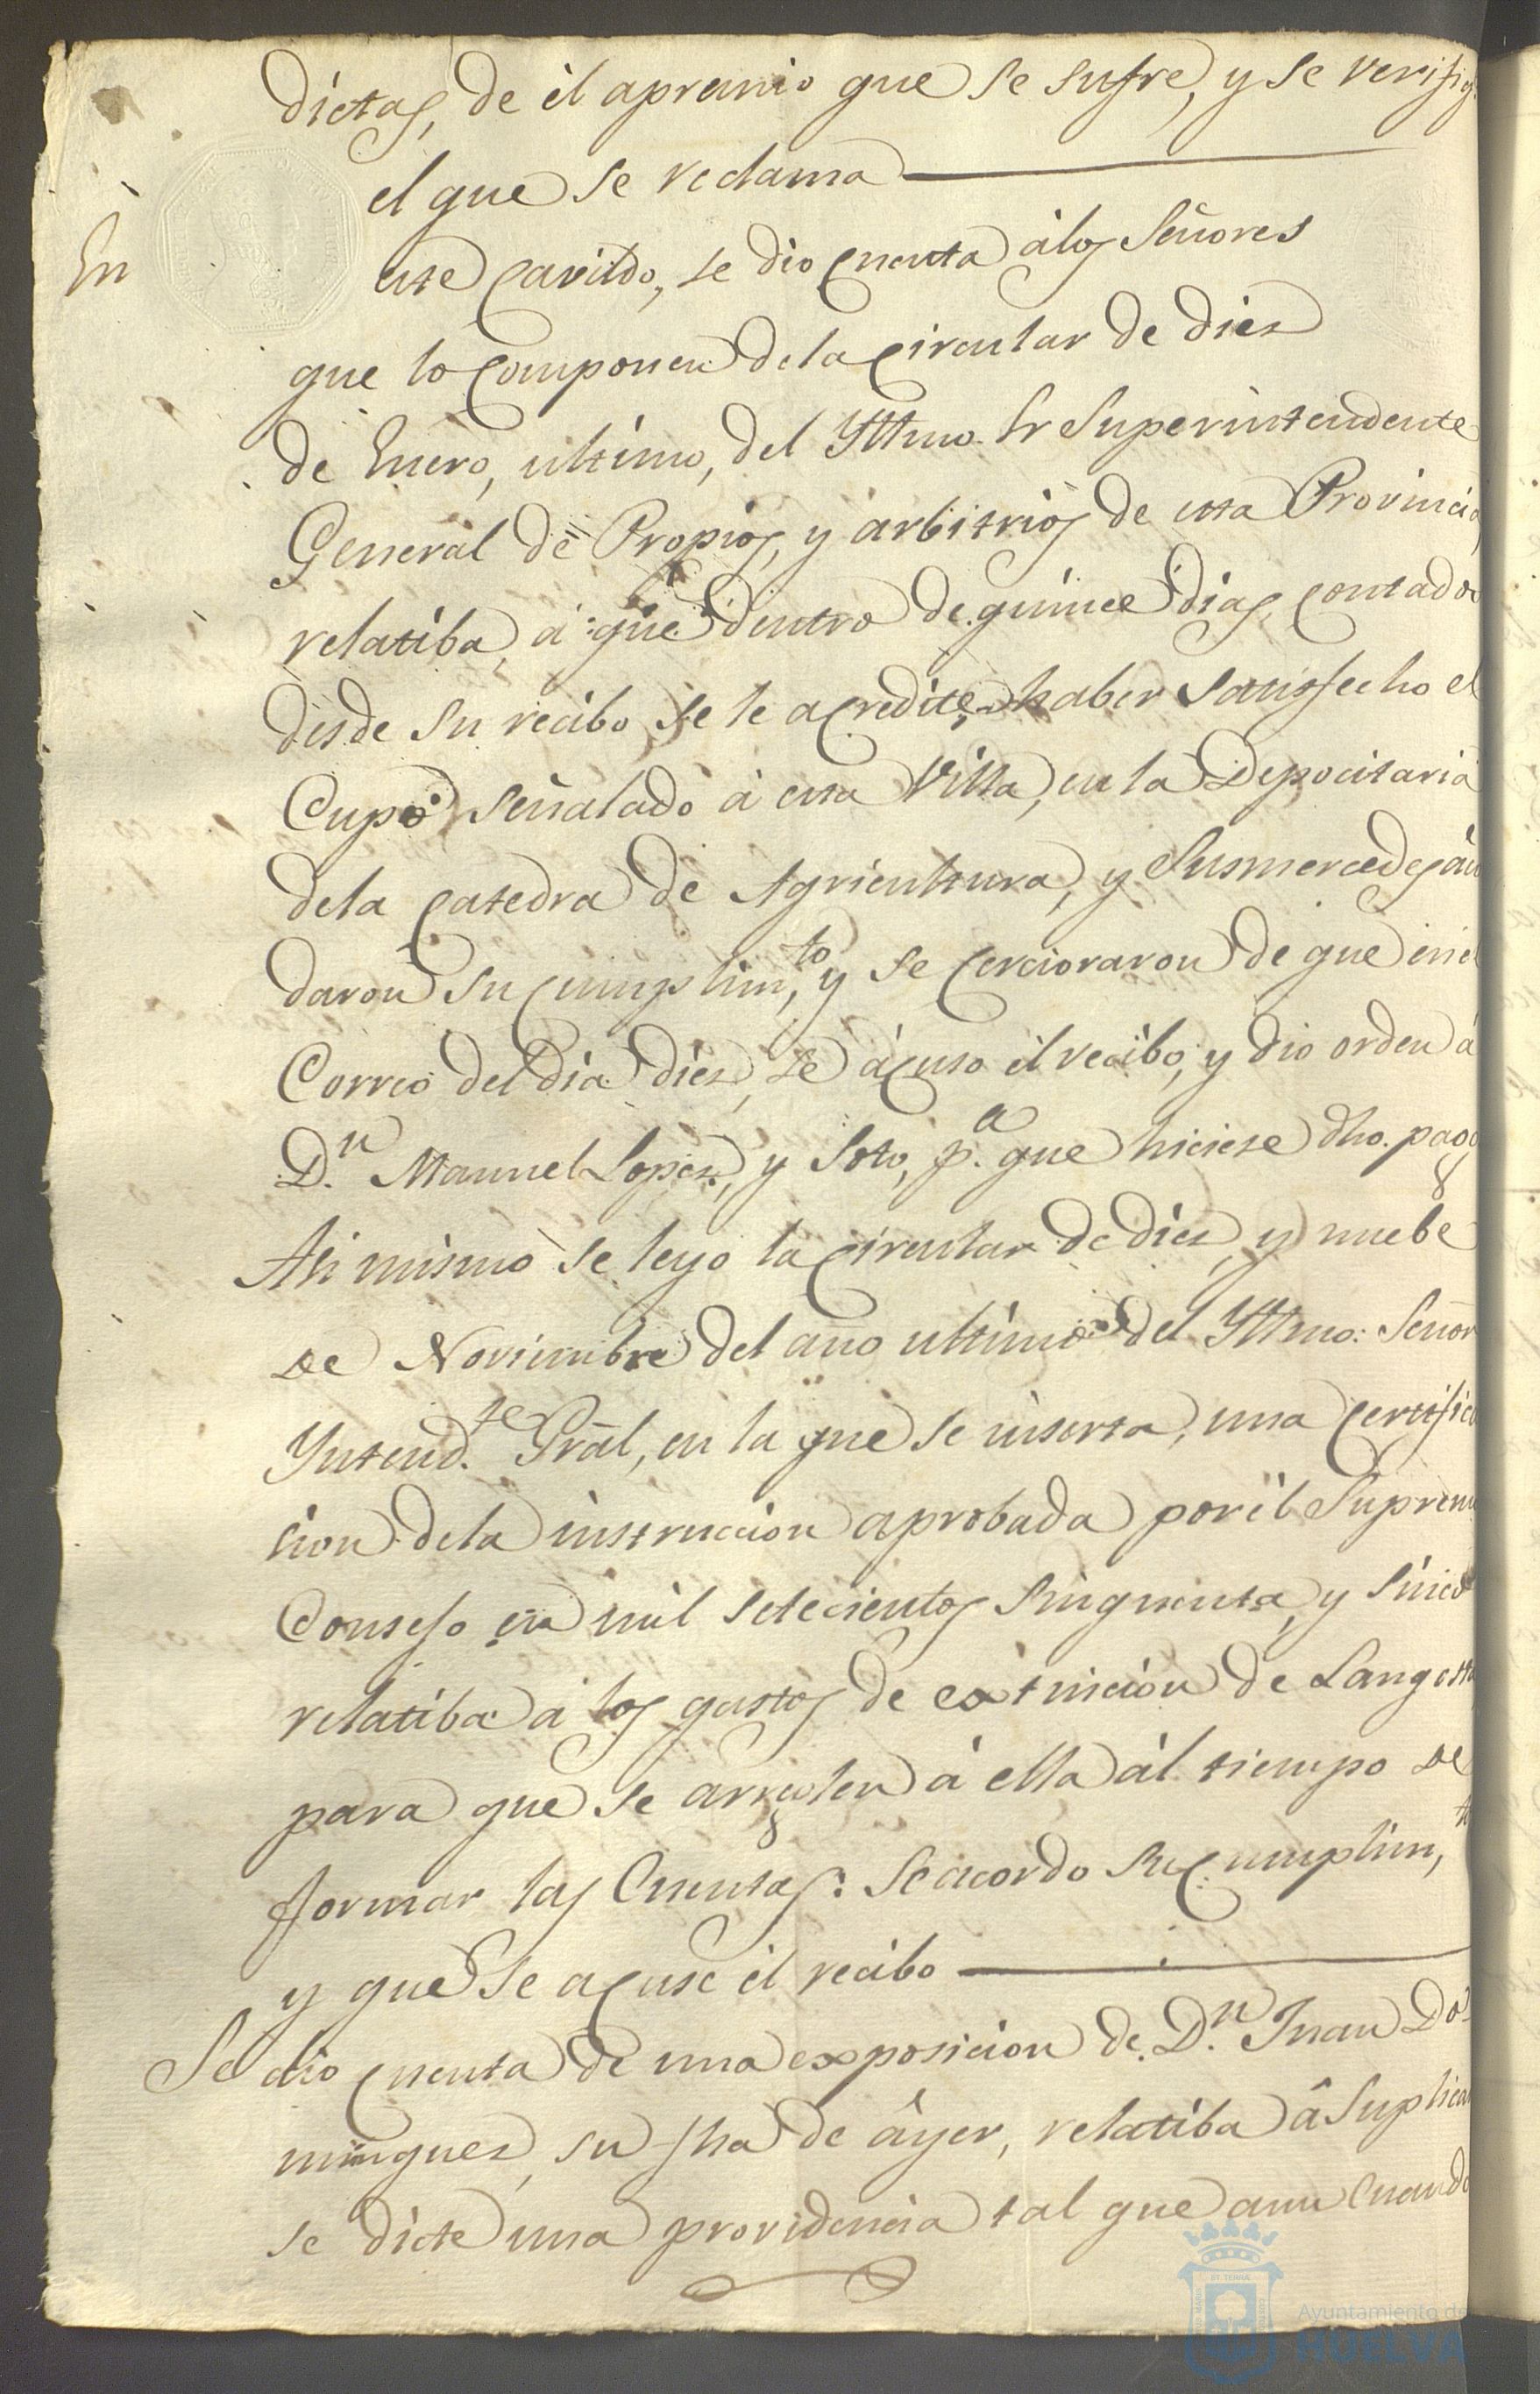 dictas, de èl apremio que se sufre, y se verifiq.
el que se reclama
En este Cavildo, se dio Cuenta àlos Señores
que lo Componen dela Circular de dies
de Enero, ultimo, del Yllmo. Sr Superintendente
General de Propios, y arbitrios de esta Provincia
relatiba, a que dentro de quince dias, Contados
desde su recibo, se le acredite haber satisfecho el
Cupo señalado à esta Villa, en la Depocitaria
dela Catedra de Agricultura, y Susmercedes àn
daron su Cumplim.to, y se Cercioraron de que en el
Correo del dia dies, se àcuso èl recibo, y dio orden à
D.n Manuel Lopez, y Soto, p.a que hiciese dho. pago
Asi mismo se leyo la Circular de dies, y nuebe
de Noviembre del año ultimo del Yllmo: Señor
Yntend.te Grâl, en la que se inserta, una Certifica
cion dela instruccion aprobada por èl Supremo
Consejo en mil setecientos sinquenta, y sinco
relatiba à los gastos de extincion de Langosta
para que se arreglen à ella àl tiempo de
formar las Cuentas: Se acordo su Cumplim.to
y que se acuse èl recibo
Se dio Cuenta de una exposicion de D.n Juan Do
minguez, su fha de àyer, relatiba â Suplicar
se dicte una providencia tal que aun Cuando
Ayuntamiento de
HUELVA